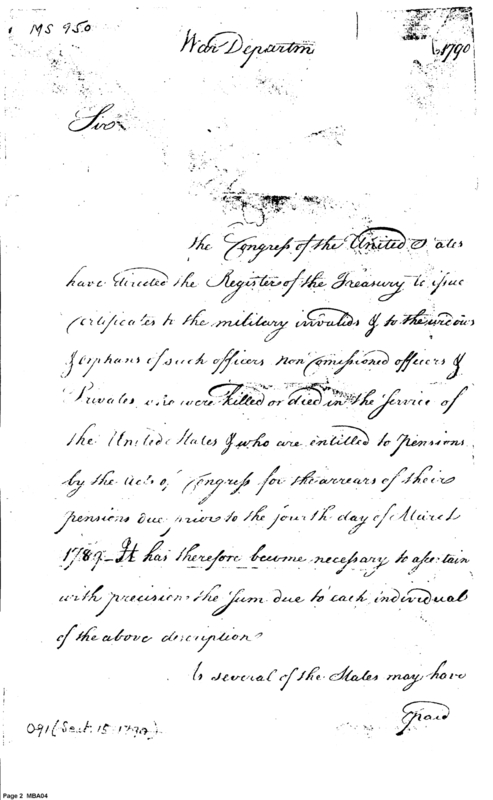 MS 950
War Departm 1790
Sir
the Congress of the United States
have directed the Register of the Treasury to issue
certificates to the military invalids & to the widows
& orphans of such officers non comissioned officers &
Privates who were killed or died in the service of
the United States & who are entitled to pensions
by the Acts of Congress for the arrears of their
pensions due prior to the fourth day of March
1789 - It has therefore become necessary to ascertain
with precision the sum due to each individual
of the above description
As several of the States may have
paid
091 (Sept. 15-1790)
Page 2 MBA04